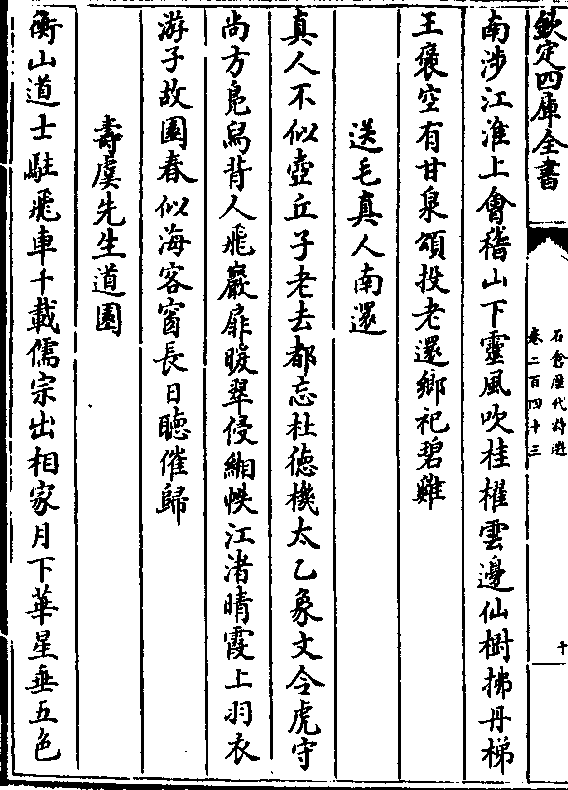 欽定四庫全書
石倉歷代詩選
卷二百四十三
十
南涉江淮上會稽山下靈風吹桂櫂雲邊仙樹拂丹梯
王褒空有甘泉頌投老還鄉祀碧雞
送毛真人南還
真人不似壺丘子老去都忘杜徳機太乙象文令虎守
尚方鳬舄背人飛巖扉暖翠侵緗帙江渚晴霞上羽衣
游子故園春似海客窗長日聽催歸
壽虞先生道園
衡山道士駐飛車千載儒宗出相家月下華星垂五色